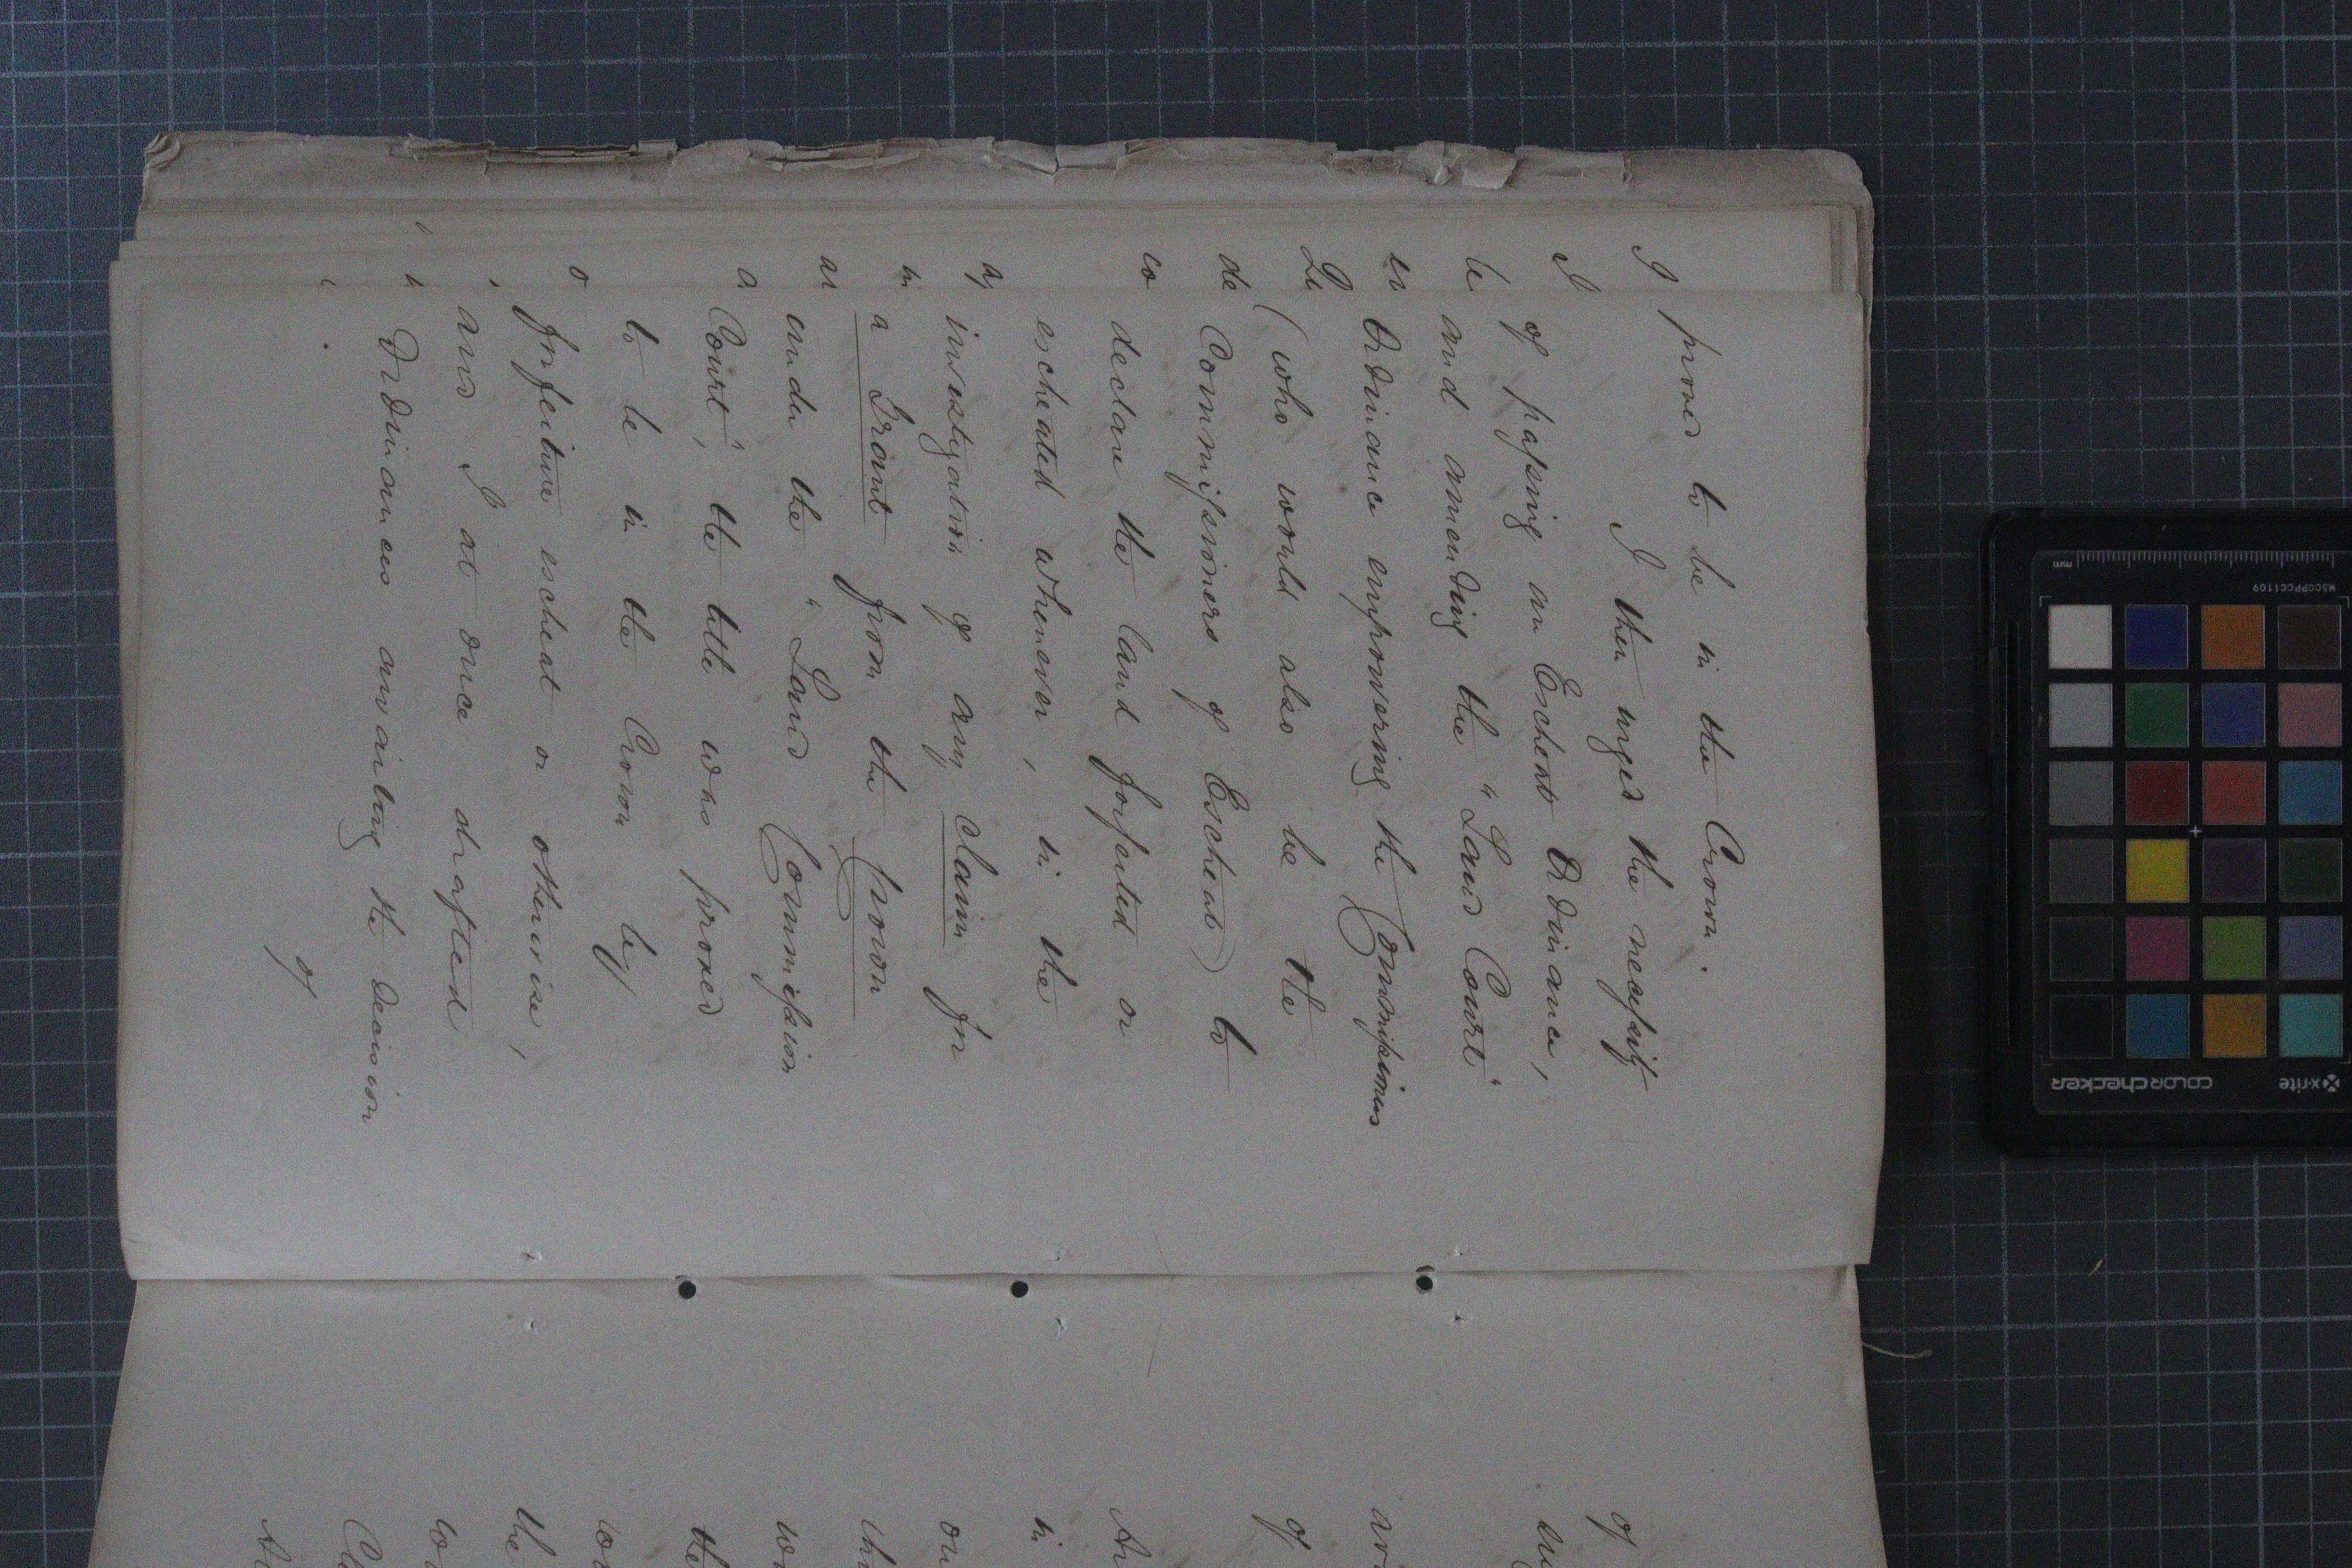 proved to be in the Crown.
I then urged the necessity
of passing an Escheat Ordinance,
and amending the "Land Court"
Ordinance empowering the Commissioners
(who would also be the
Commissioners of Escheat) to
declare the land forfeited or
escheated whenever, in the
investigation of any claim for
a Grant from the Crown
under the "Land Commission
Court", the title was proved
to be in the Crown by
forfeiture escheat or otherwise,
and I at once drafted
Ordinances awaiting the decision
of
I
I
be
de
co
in
ar
a
o
of
of
in
the
the
x-rite
colorchecker
MSCCPPCC1109
mm